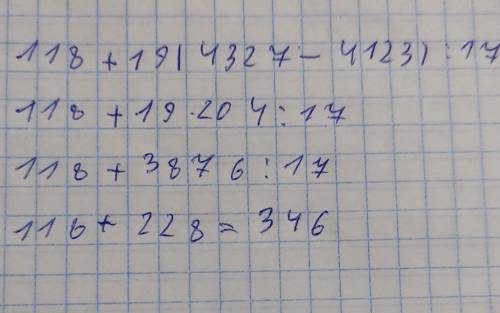 118 + 19( 4327 - 4123) : 17
118 + 19 · 204 : 17
118 + 3876 : 17
118 + 228 = 346